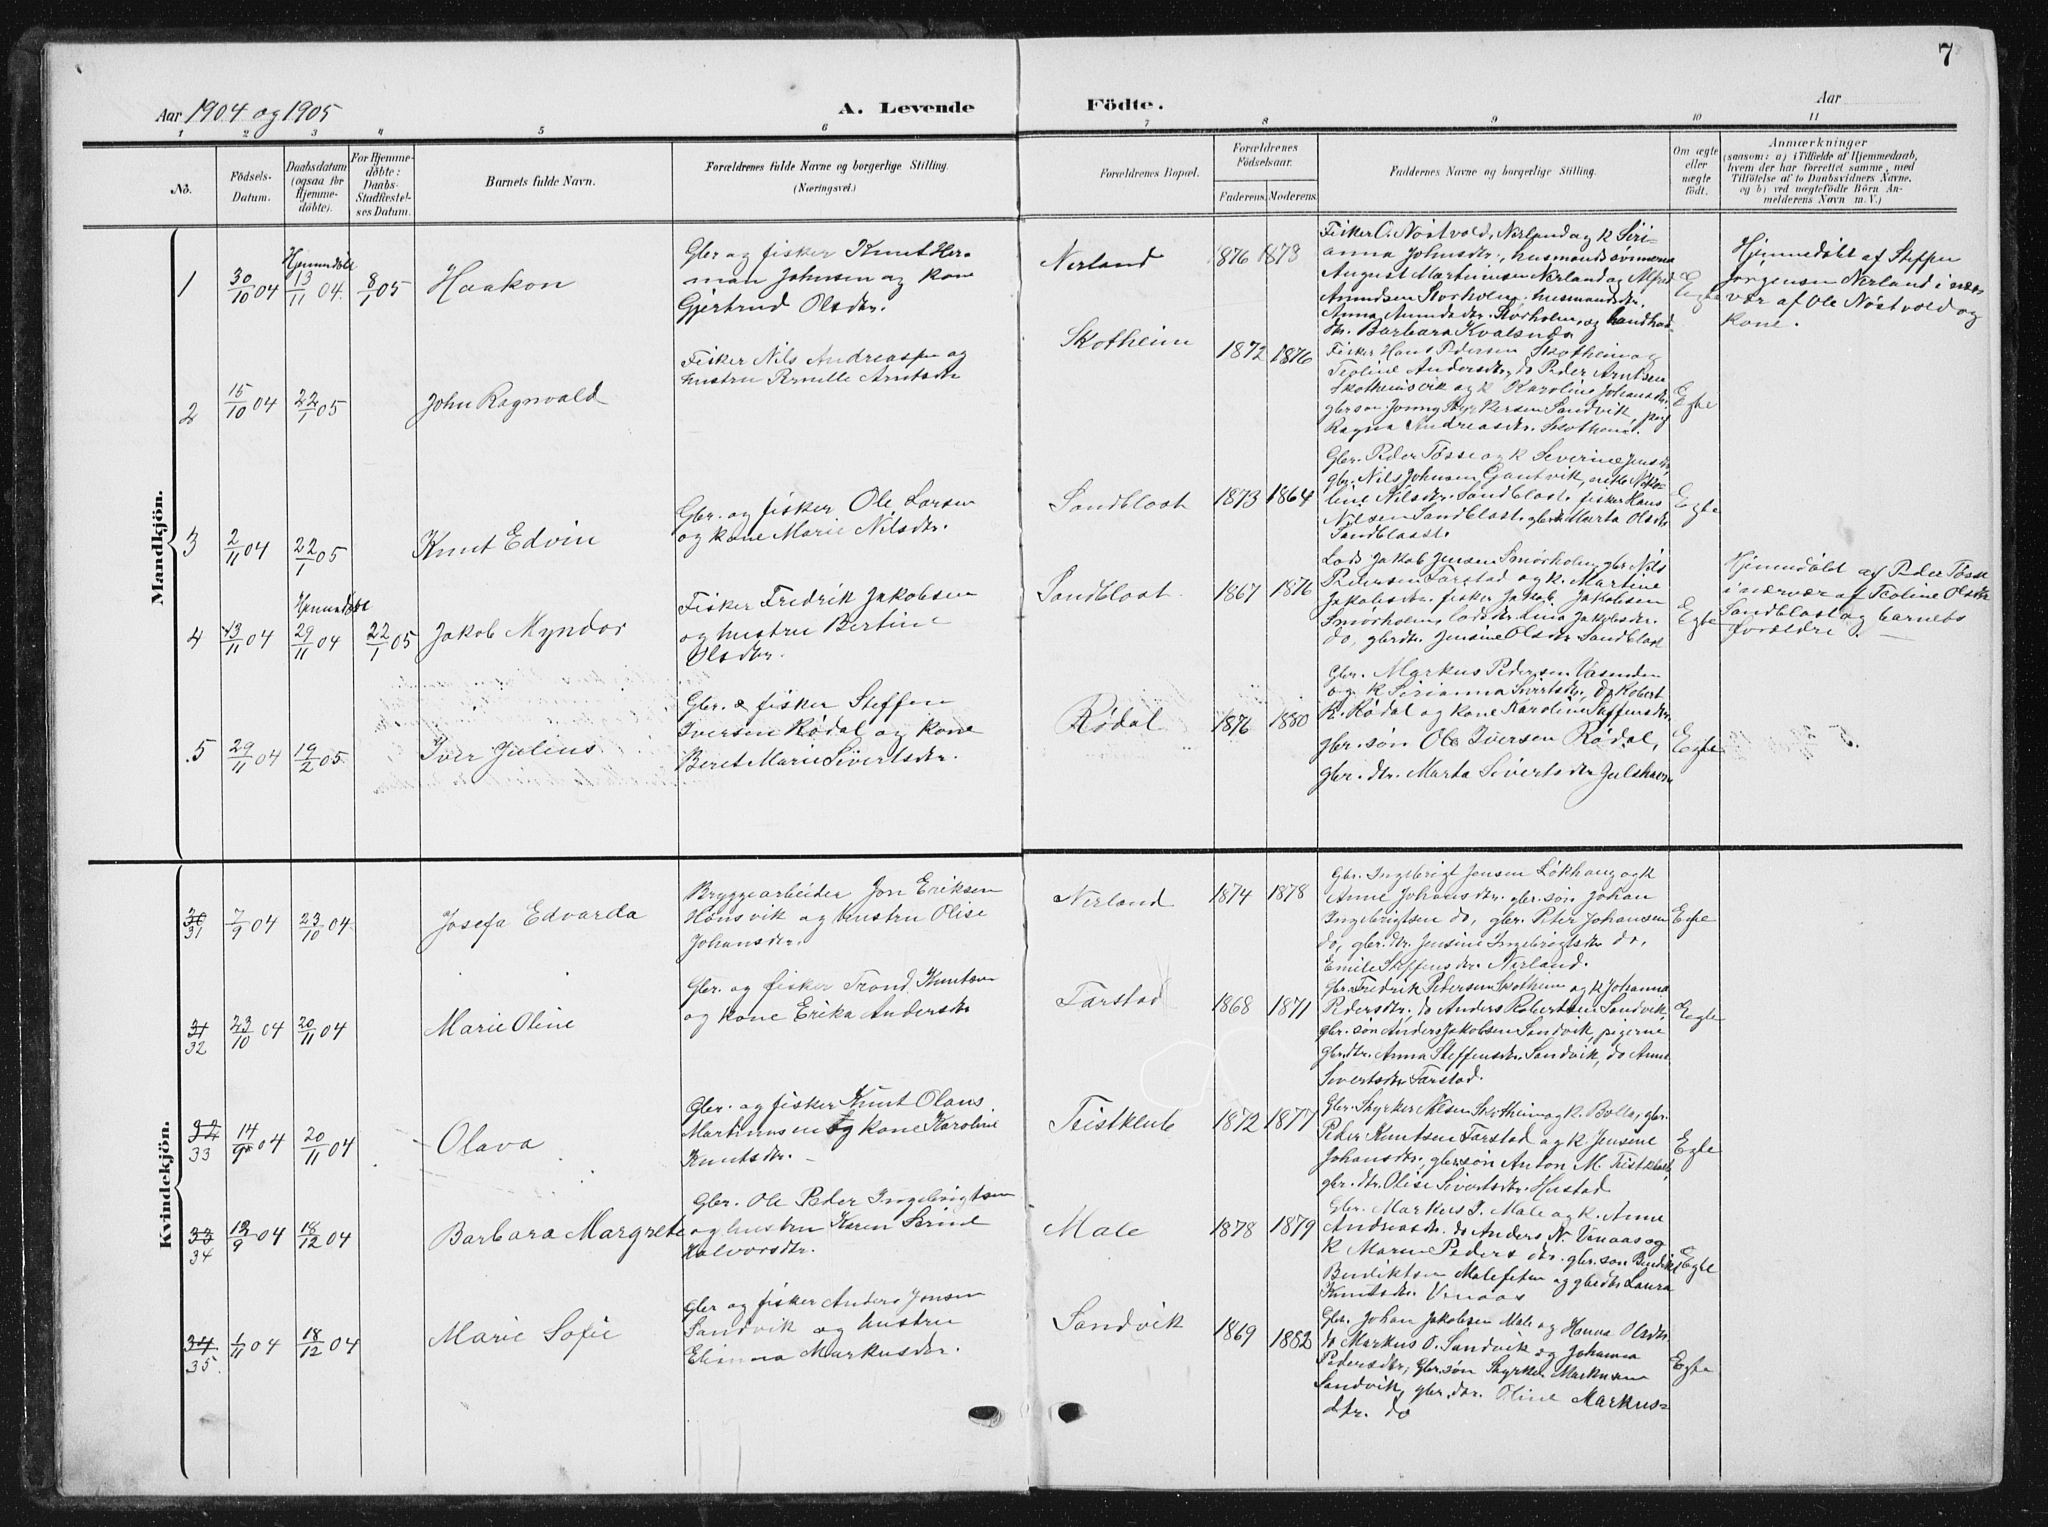 7
Aar 1904 og 1905
A. Levende
Födte.
Aar
1 2 3 4 5 6 7 8 9 10 11
No.
Födsels-Datum.
Daabsdatum (ogsaa for Hjemme-döbte).
For Hjemme-döbte: Daabs-Stadfæstel-ses Datum.
Barnets fulde Navn.
Forældrenes fulde Navne og borgerlige Stilling.
(Næringsvei.)
Forældrenes Bopæl.
Forældrenes Födselsaar.
Faderens. Moderens.
Faddernes Navne og borgerlige Stilling.
Om ægte eller uægte födt.
Anmærkninger
(saasom: a) i Tilfælde af Hjemmedaab,
hvem der har forrettet samme, med
Tilföielse af to Daabsvidners Navne,
og b) ved uægtefödte Börn An-
melderens Navn m. V.)
Mandkjön.
1
30/10 04
Hjemmedöbt
13/11 04.
8/1 05
Haakon
Gbr og fisker Knut Her-
man Johnsen og kone
Gjertrud Olsdtr.
Nerland
1876 1873
Fisker O. Nöstvold, Nerland og k Seri-
anna Johnsdtr., husmandssvinerne
August Martinusen Nerland og Alfred
Amundsen Storholm, husmandsdtr.
Anna Amundsdtr. Storholm, og landhand
dtr. Barbara Kvalsnds
Egte
Hjemmedöbt af Steffen
Jörgensen Nerland i nær
vær af Ole Nöstvold og
kone.
2
15/10 04
22/1 05
John Ragnvald
Fisker Nils Andreassen og
hustru Pernille Arntsdtr
Skotheim
1872 1876
Fisker Hans Pedersen Skotheim og
Teoline Andersdtr, do Peder Arntsen
Skotheimsvik og k Karoline Johansdtr.
gbr søn Jonny Styrkersen Sandvik, pig
Ragna Andreasdtr. Skotheim.
Egte
3
2/11 04
22/1 05
Knut Edvin
Gbr. og fisker Ole Larsen
og kone Marie Nilsdtr.
Sandblaat
1873 1864
Gbr. Peder Tösse og k Severine Jensdtr
gbr. Nils Johnsen Gautvik, enke
line Nilsdtr. Sandblast, fisker Hans
Nilsen Sandblast, gbrdtr Marta Olsdtr
Sandblaast.
Egte
4
13/11 04
Hjemmedöbt
29/11 04
22/1 05
Jakob Myndor
Fisker Fredrik Jakobsen
og hustru Bertine
Olsdtr.
Sandblaat.
1867 1876
Lods Jakob Jensen Smörholm, gbr Nils
Pedersen Farstad og k. Martine
Jakobsdtr. fisker Jakob Jakobsen
Smörholm, lodsdtr. Lina Jakobsdtr.
do, gbrdtr. Jensine Olsdtr Sandblast
Egte
Hjemmedöbt af Peder Tösse
i nærvær af Teoline Olsdtr
Sandblast og barnets
forældre.
5
29/11 04
19/2 05
Iver Julius
Gbr. & fisker Steffen
Iversen Rødal og kone
Beret Marie Sivertsdtr.
Rødal
1876 1880
Gbr. Markus Pedersen Vasenden
og k Serianna Sivertsdtr, do Robert
K. Rødal og kone Karoline Steffensdtr
gbr. søn Ole Iversen Rødal,
gbr. dtr. Marta Sivertsdtr Julshavn
Egte
Kvindekjön.
30
31
7/9 04
23/10 04
Josefa Edvarda
Bryggearbeider Jon Eriksen
Honsvik og hustru Olise
Johansdtr.
Nerland
1874 1878
Gbr. Ingebrigt Jensen Løkhaug og k
Anne Johansdtr. gbr. søn Johan
Ingebrigtsen do, gbr. Peter Johansen
do, gbr. dtr. Jensine Ingebrigtsdtr do,
Emile Steffensdtr. Nerland.
Egte
31
32
23/10 04
20/11 04
Marie Oline
Gbr. og fisker Trond Knutsen
og kone Erika Andersdtr
Farstad
1868 1871
Gbr. Fredrik Pedersen Skotheim og k Johanna
Pedersdtr. do Anders Robertsen Sandvik
gbr. søn Anders Jakobsen Sandvik, pigerne
gbr.dtr. Anna Steffensdtr. Sandvik, do Anne
Sivertsdtr Farstad.
Egte
32
33
14/9 04
20/11 04
Olava
Gbr. og fisker Knut Olaus
Martinusen og kone Karoline
Knutsdtr.
Teistklub
1872 1877
Gbr. Styrker Nilsen Skotheim og k. Bolla, gbr.
Peder Knutsen Farstad og k. Jensine
Johansdtr., gbr. søn Anton M. Teistklub
gbr. dtr. Olise Sivertsdtr. Hustad
Egte
33
34
12/9 04
18/12 04
Barbara Margrete
Gbr. Ole Peder Ingebrigtsen
og hustru Karen Serine
Halvorsdtr.
Male
1878 1879
Gbr. Markus I. Male og k. Anne
Andreasdtr. do Anders N. Vinaas og
k Maren Pedersdtr. gbr. søn Bendikt
Bendiktsen Malefeten og gbrdtr. Laura
Knutsdtr. Vinaas
Egte
34
35
1/11 04
18/12 04
Marie Sofie
Gbr og fisker Anders Jonsen
Sandvik og hustru
Elianna Markusdtr.
Sandvik
1869 1882
Gbr. Johan Jakobsen Male og Hanna Olsdtr.
do Markus O. Sandvik og Johanna
Pedersdtr, Gbr. søn Styrker Markusen
Sandvik, gbr. dtr. Oline Markus-
dtr. do
Egte